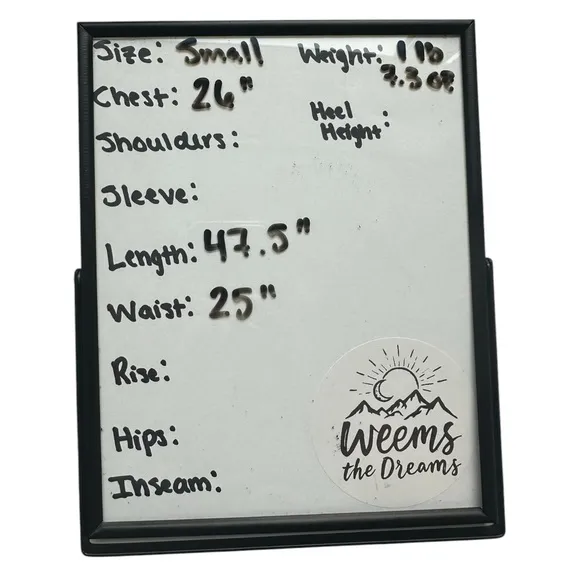 Size: Small
Weight: 1 lb
7.3 oz
Chest: 26"
Heel
Height:
Shoulders:
Sleeve:
Length: 47.5"
Waist: 25"
Rise:
Hips:
Inseam:
Weems
the Dreams